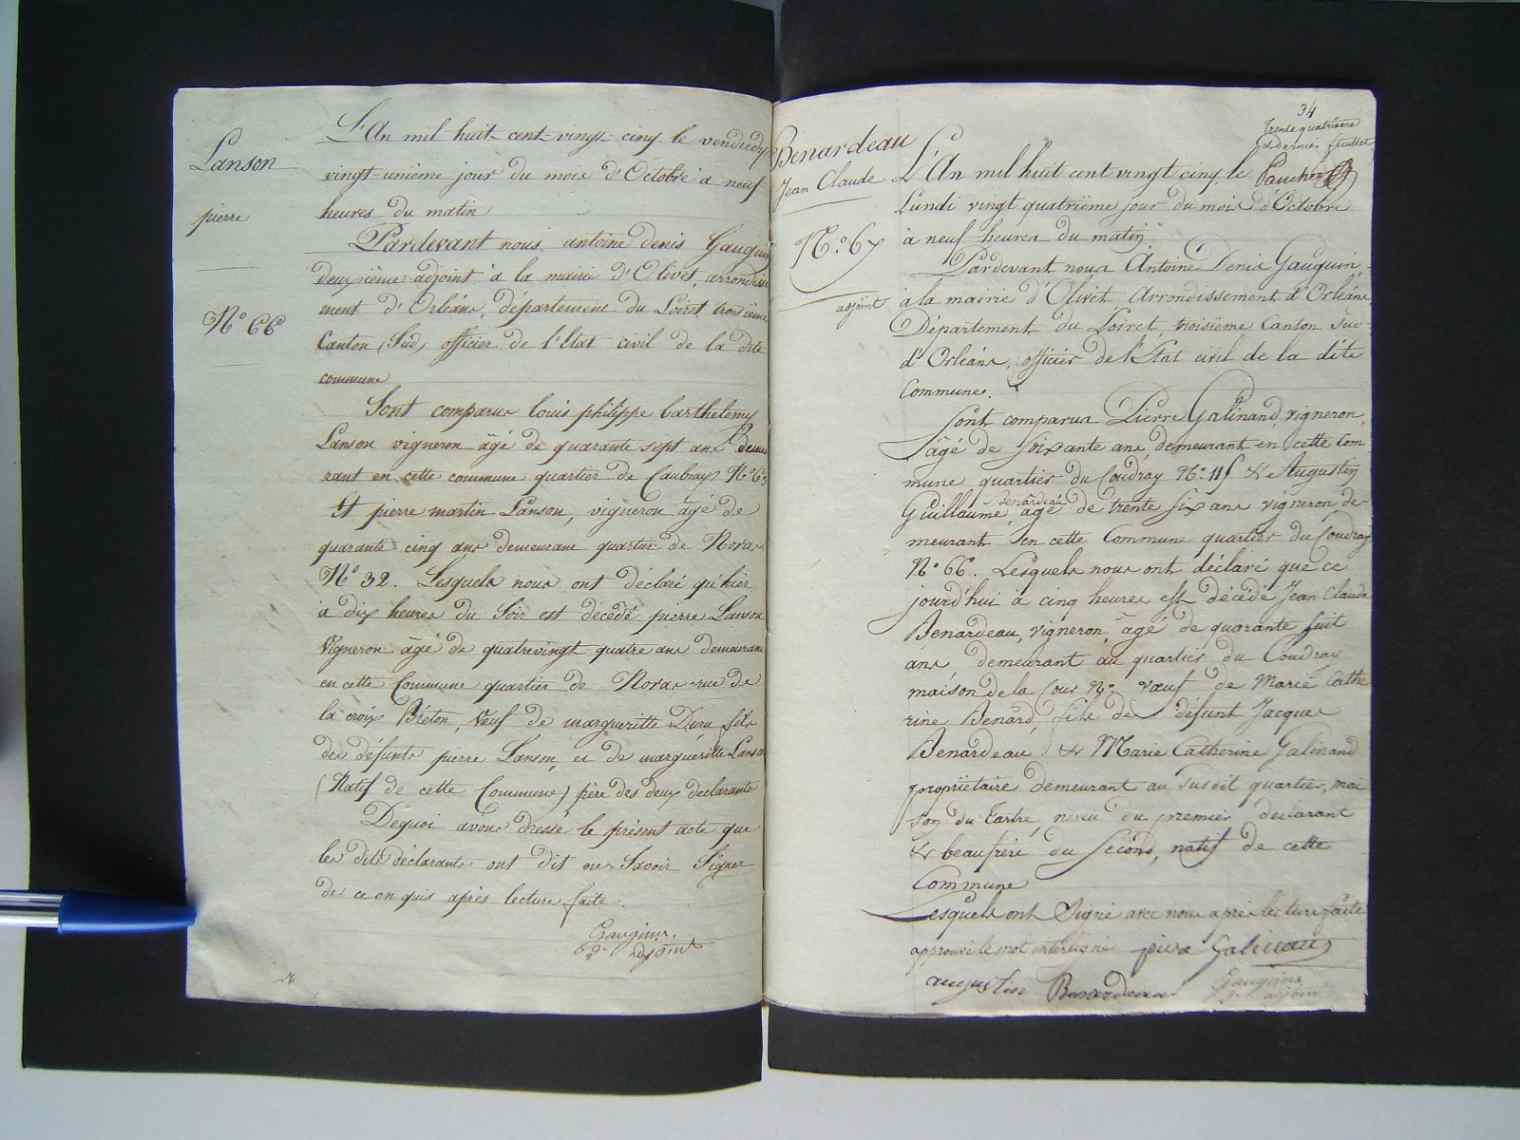 Lanson
pierre
N.° 66
L'An mil huit cent vingt cinq le vendredy
vingt unième jour du mois d'Octobre à neuf
heures du matin
Pardevant nous, antoine denis Gauguin
deuxième adjoint à la mairie d'Olivet, arrondisse
ment d'Orléans, département du Loiret troisième
Canton (Sud) officier de l'Etat civil de la dite
commune
Sont comparus louis philippe barthelemy
Lanson vigneron âgé de quarante sept ans demeu
rant en cette commune quartier de Caubray N.°
Et pierre martin Lanson, vigneron âgé de
quarante cinq ans demeurant quartier de Noras
N.° 32. Lesquels nous ont déclaré qu'hier
à dix heures du Soir est décédé pierre Lanson
Vigneron âgé de quatrevingt quatre ans demeurant
en cette Commune quartier de Noras rue de
la croix Breton, Veuf de margueritte Duru fils
des défunts pierre Lanson, et de margueritte Lanson
(Natif de cette Commune) père des deux declarants
Dequoi avons dressé le présent acte que
les dits déclarants ont dit ne Savoir Signer
de ce enquis après lecture faite.
Gauguin.
adjoint
34
trente quatrième
et dernier feuillet
Benardeau
Jean Claude
N.° 67
L'An mil huit cent vingt cinq, le
Lundi vingt quatrième jour du mois d'Octobre
à neuf heures du matin.
Pardevant nous Antoine Denis Gauguin,
adjoint à la mairie d'Olivet, Arrondissement d'Orléans
Département du Loiret, troisième Canton Sud
d'Orléans, officier de l'Etat civil de la dite
Commune.
Sont comparus Pierre Galinand, vigneron,
âgé de soixante ans, demeurant en cette Com
mune quartier du Coudray N.° 115 & Augustin
benardeau
Guillaume, âgé de trente six ans vigneron de
meurant en cette Commune quartier du Coudray
N.° 66. Lesquels nous ont déclaré que ce
jourd'hui à cinq heures est décédé Jean Claude
Benardeau, vigneron, âgé de quarante huit
ans demeurant au quartier du Coudray
maison de la Cour N.° veuf de Marie Cathe
rine Benard, fils de défunt Jacques
Benardeau & Marie Catherine Galinand
propriétaire demeurant au Susdit quartier, mai
son du Tertre, neveu du premier declarant
& beaufrère du Second, natif de cette
Commune
Lesquels ont Signé avec nous après lecture faite
approuvé le mot interligné pierre Galinand
augustin Benardeau Gauguin
adjoint